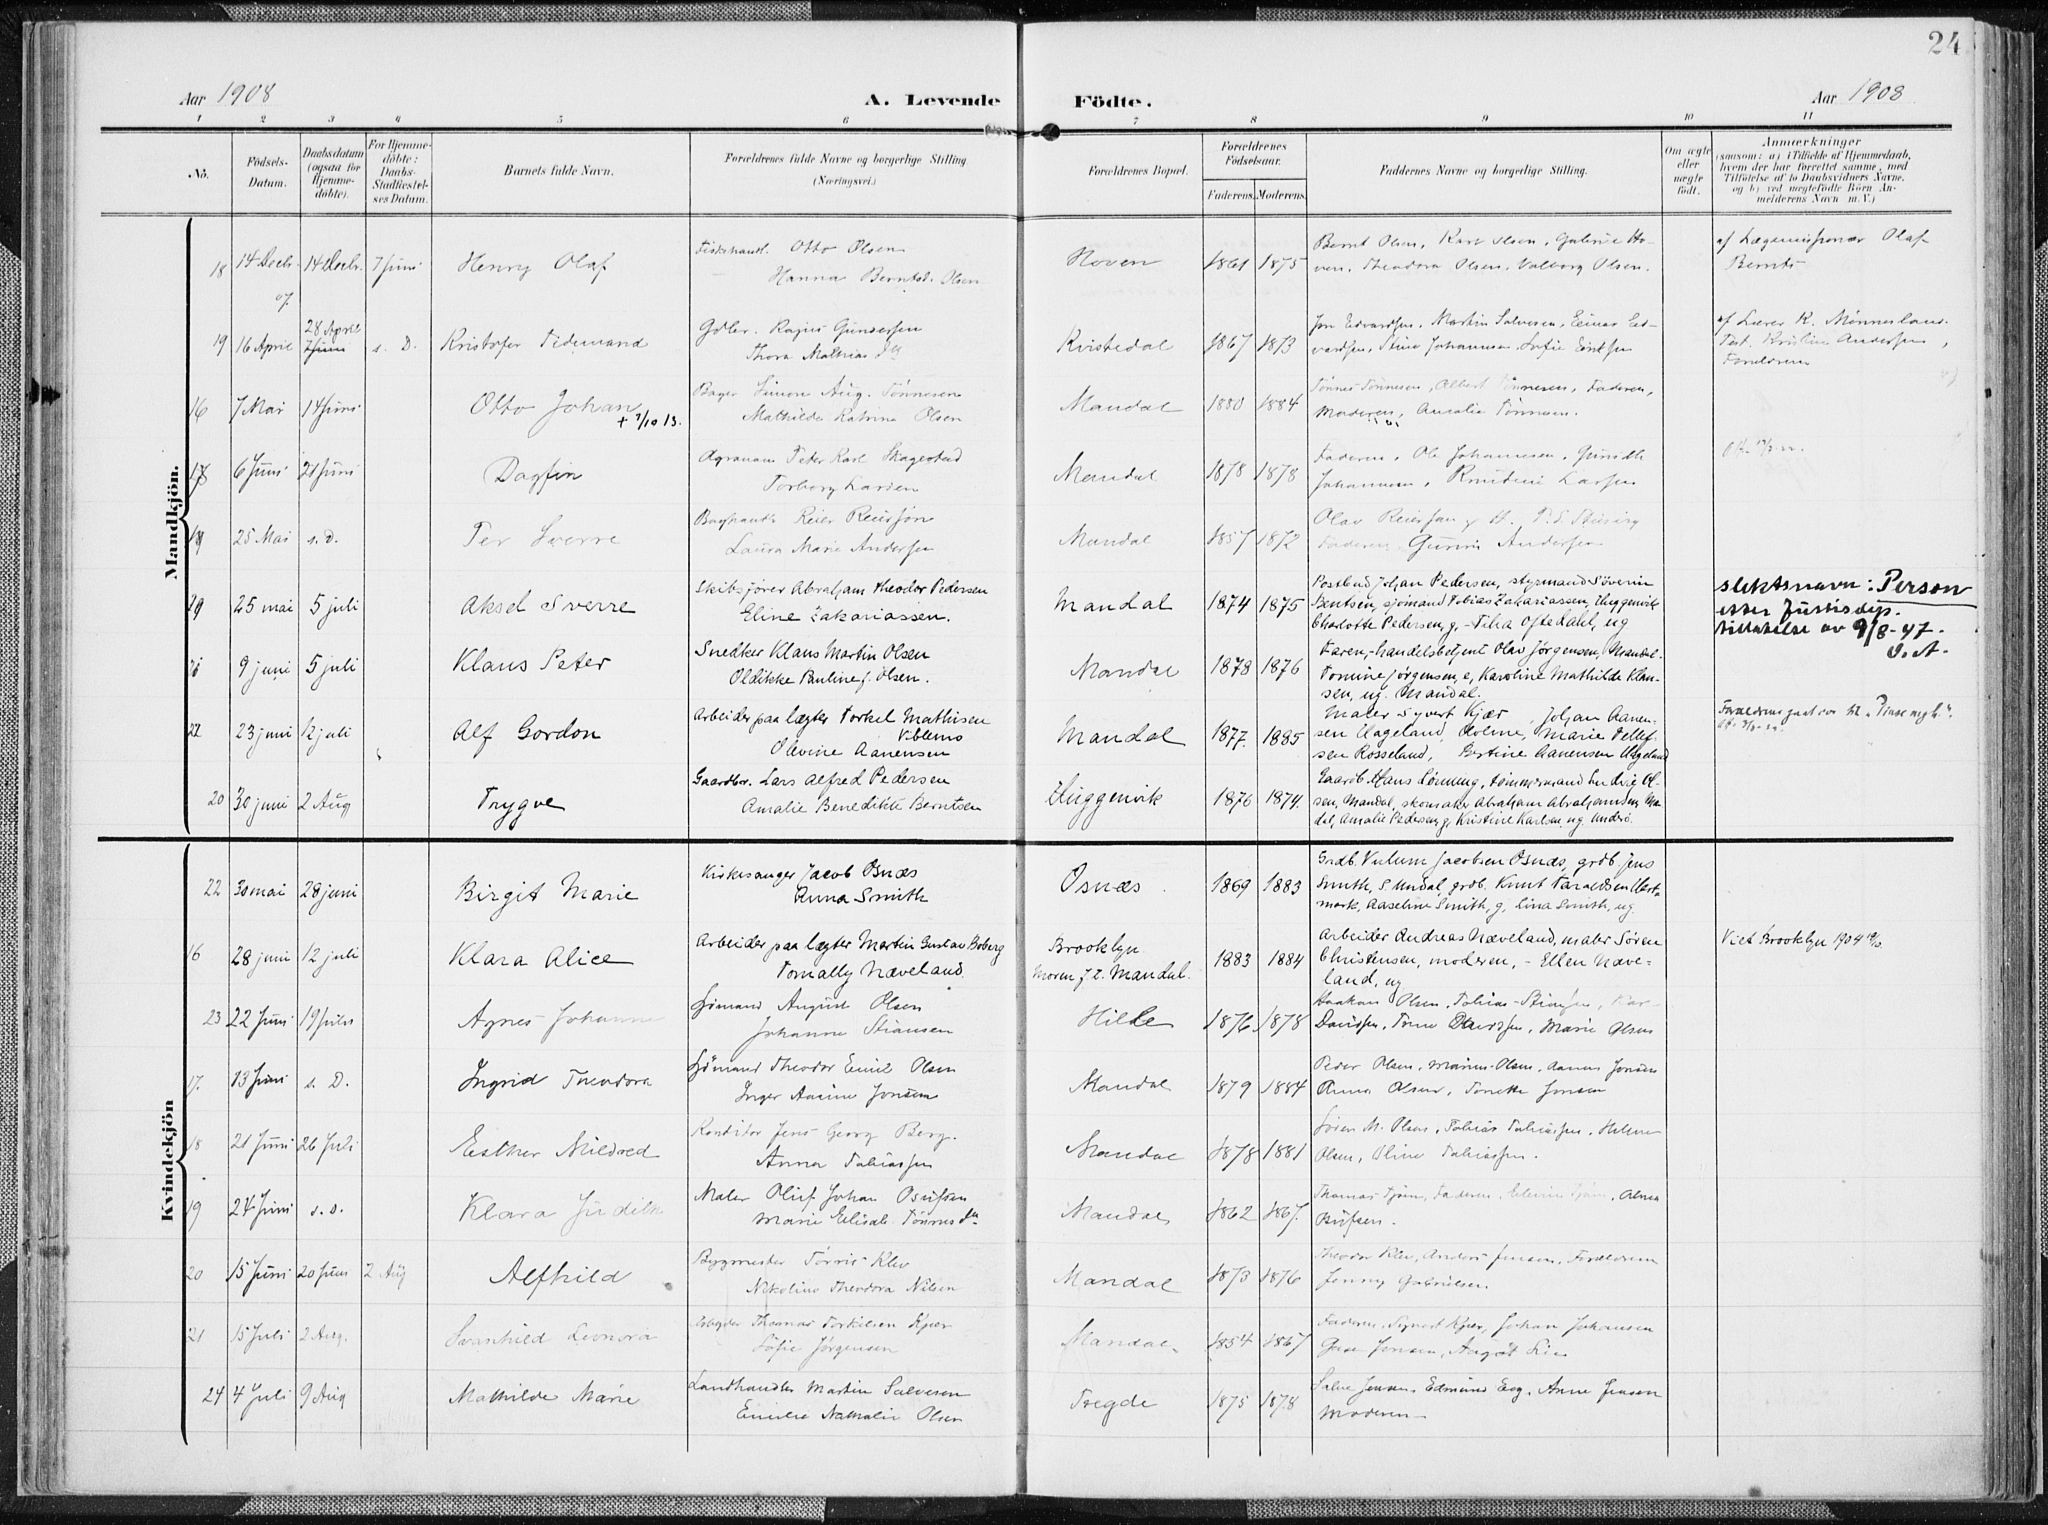 24
Aar 1908
A. Levende Födte.
Aar 1908
1 2 3 4 5 6 7 8 9 10 11
No.
Födsels-
Datum.
Daabsdatum
(ogsaa for
Hjemme-
döbte).
For Hjemme-
döbte:
Daabs-
Stadfæstel-
ses Datum.
Barnets fulde Navn.
Forældrenes fulde Navne og borgerlige Stilling
(Næringsvei.)
Forældrenes Bopæl.
Forældrenes
Födselsaar.
Faderens. Moderens.
Faddernes Navne og borgerlige Stilling.
Om ægte
eller
uægte
födt.
Anmærkninger
(saasom: a) i Tilfælde af Hjemmedaab,
hvem der har forrettet samme, med
Tilföielse af to Daabsvidners Navne,
og b) ved uægtefödte Börn An-
melderens Navn m. V.)
Mandkjön.
18 14 Decb. 07. 14 Decb. 7 Juni Henry Olaf
Fiskehandl. Otto Olsen
Hanna Berntsd. Olsen
Hoven 1861 1875
Bernt Olsen, Karl Olsen, Galine Ho-
ven, Theodora Olsen, Valborg Olsen.
af Lægemissionær Olaf
Bernts
19 16 April 28 April 7 Juni s. D. Kristofer Tidemand
Gdbr. Rajus Gundersen
Thora Mathias Dtr
Kvistedal 1867 1873
Jon Edvardsen, Martin Salvesen, Einar Ed-
vardsen, Stine Johannesen, Sofie Eriksen
af Lærer K. Mønnesland.
Test. Kristine Andersen,
Forældrene
16 7 Mai 14 Juni Otto Johan
+ 7/10 13.
Bager Simon Aug. Tønnesen
Mathilde Katrine Olsen
Mandal 1880 1884
Tønnes Tønnesen, Albert Tønnesen, Faderen,
Moderen, Amalie Tønnesen.
17 6 Juni 21 Juni Dagfin
Agronom Peter Karl Skagestad
Torborg Larsen
Mandal 1878 1878
Faderen, Ole Johannesen, Gunild
Johannesen, Knudine Larsen
18 25 Mai s. D. Per Sverre
Reier Reiersen
Laura Marie Andersen
Mandal 1857 1872
Olav Reiersen
Faderen, Gunni Andersen
19 25 mai 5 juli Aksel Sverre
Skibsfører Abraham Theodor Pedersen
Eline Zakariassen.
Mandal 1874 1875
Postbud Johan Pedersen, styrmand Søverin
Bentsen, sjømand Tobias Zakariassen, Uggenvik
Charlotte Pedersen, g, Tilla Oftedahl, ug
slektsnavn: Person
etter Justisdep.
tillatelse av 9/8-47.
O. A.
9 juni 5 juli Klaus Peter
Snedker Klaus Martin Olsen
Oldikke Pauline f. Olsen.
Mandal 1878 1876
Faren, handelsbetjent Olav Jørgensen, Mandal.
Tomine Jørgensen, e, Karoline Mathilde Klau-
sen, ug. Mandal.
22 23 juni 12 juli Alf Gordon
Arbeider paa lægter Torkel Mathisen
Viblemo
Olevine Aanensen
Mandal 1877. 1885
Maler Syvert Kjær, Johan Aanen-
sen Ugeland, Marie Tellef-
sen Rosseland, Bertine Aanensen Ugeland
Forældrene gaat over til
20 30 juni 2 Aug Trygve
Gaardbr. Lars Alfred Pedersen
Amalie Benedikte Berntsen
Uggenvik 1876 1874.
Gaardb. Hans Lønning, tømmermand Ludvig Ol-
sen, Mandal, skomaker Abraham Abrahamsen, Man-
dal, Amalie Pedersen, g, Kristine Karlsen, ug.
Kvindekjön
22 30 mai 28 juni Birgit Marie
Kirkesanger Jacob Osnæs
Anna Smith
Osnæs. 1869 1883
Grdb. Vilum Jacobsen Osnæs, grdb. Jens
Smith, S. Undal, grdb. Knut Taraldsen
Aaseline Smith, g, Lina Smith, ug.
16 28 juni 12 juli Klara Alice
Arbeider paa lægter Martin Gustav Boberg
Tomally Næveland.
Brooklyn
Moren f. t. Mandal. 1883 1884
Arbeider Andreas Næveland, maler Søren
Christensen, moderen, – Ellen Næve-
land, ug
Viet Brooklyn 1904
23 22 Juni 19 Juli Agnes Johanne
Sjømand August Olsen
Johanne Stiansen
Hille 1876 1878
Haakon Olsen, Tobias Stiansen, Kar-
Davidsen, Davidsen, Marie Olsen
17. 13 Juni s. D. Ingrid Theodora
Sjømand Theodor Emil Olsen
Inger Aasine Jonsen
Mandal 1879 1884
Peder Olsen, Marius Olsen, Jonsen
Anna Olsen, Tonette Jonsen
18 21 Juni 26 Juli Esther Mildred
Konditor Jens Georg Berg.
Anna Tobiassen
Mandal 1878 1881
Søren M. Olsen, Tobias Tobiassen, Helene
Olsen, Oline Tobiassen.
19 24 Juni s. D. Klara Judith
Maler Oluf Johan Osufsen
Marie Elisab. Tønnes Dtr
Mandal 1862 1867.
Thomas Tjøm, Faderen, Tjøm, Alma
20 15 Juni 20 Juni 2 Aug Alfhild
Bygmester Tørris Klev
Nikoline Theodora Nilsen
Mandal 1873 1876
Theodor Klev, Anders Jensen, Forældrene
Jenny Gabrielsen.
21 15 Juli 2 Aug. Svanhild Leonora
Arbeider Thomas Torkilsen Kjær
Sofie Jørgensen
Mandal 1854 1867
Faderen, Syvert Kjær, Johan Johansen
Jensen, Aagot Lie
24 4 Juli 9 Aug Mathilde Marie
Landhandler Martin Salvesen
Emilie Nathalie Olsen
Tregde 1875 1878
Salve Jensen, Edmund Eeg, Anne Jensen
Moderen